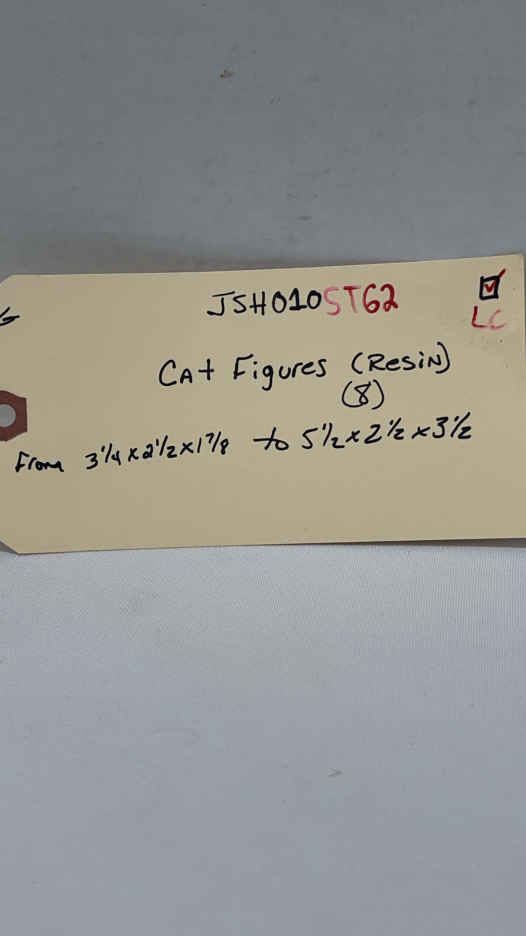 JSH010ST62
LC
Cat Figures (Resin)
(8)
From 3 1/4 x 2 1/2 x 1 7/8 to 5 1/2 x 2 1/2 x 3 1/2